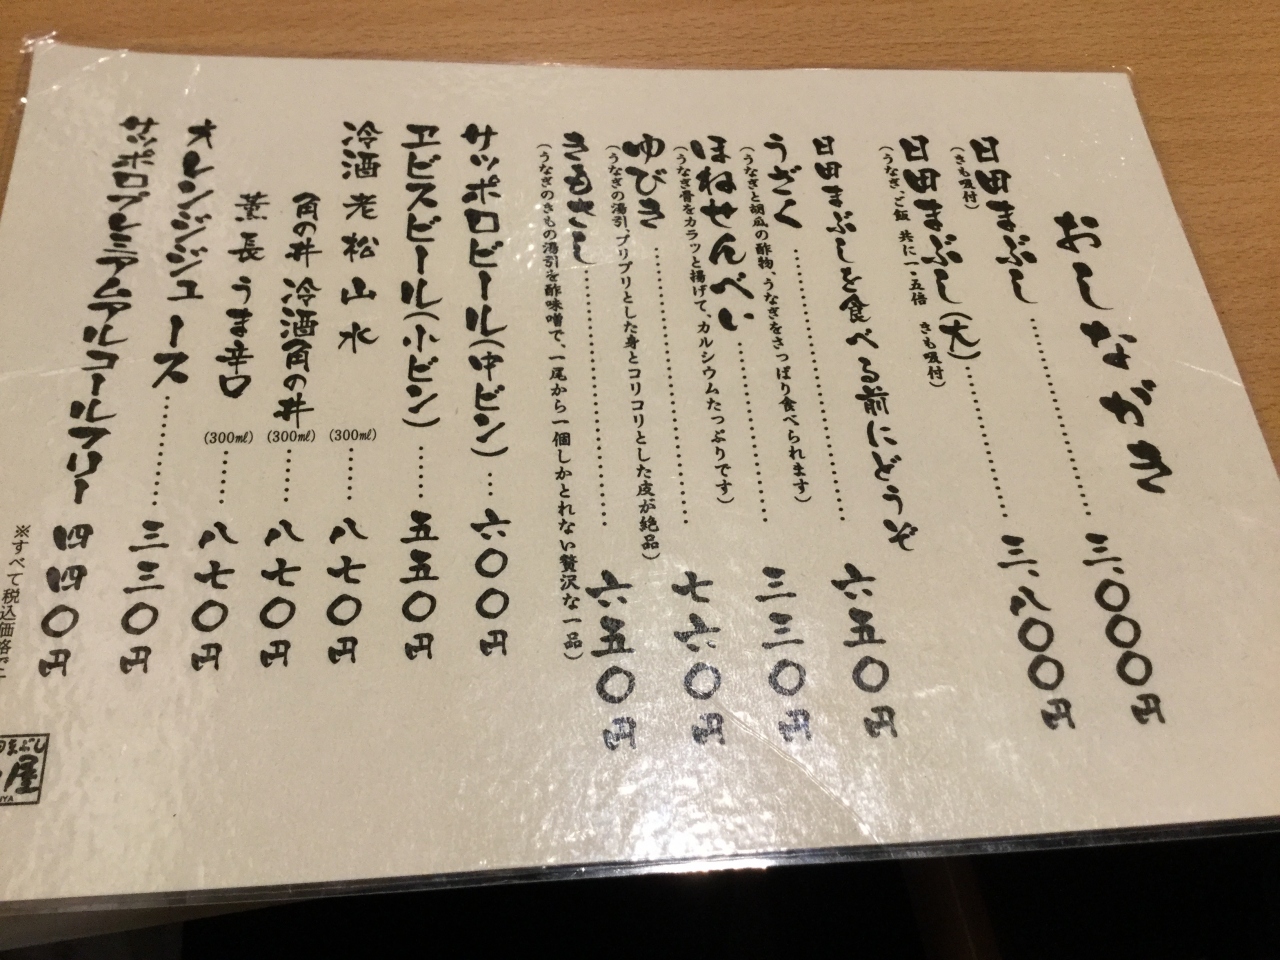 おしながき
日田まぶし……三、〇〇〇円
(きも吸付)
日田まぶし(大)……三、八〇〇円
(うなぎ、ご飯 共に一・五倍 きも吸付)
日田まぶしを食べる前にどうぞ
うざく……六五〇円
(うなぎと胡瓜の酢物、うなぎをさっぱり食べられます)
ほねせんべい……三三〇円
(うなぎ骨をカラッと揚げて、カルシウムたっぷりです)
ゆびき……七六〇円
(うなぎの湯引、プリプリとした身とコリコリとした皮が絶品)
きもさし……六五〇円
(うなぎのきもの湯引を酢味噌で、一尾から一個しかとれない贅沢な一品)
サッポロビール(中ビン)…六〇〇円
ヱビスビール(小ビン)……五五〇円
冷酒 老松 山水 (300㎖)……八七〇円
角の井 冷酒角の井 (300㎖)……八七〇円
薫長 うま辛口 (300㎖)……八七〇円
オレンジジュース……三三〇円
サッポロプレミアムアルコールフリー 四四〇円
※すべて税込価格で
まぶし
屋